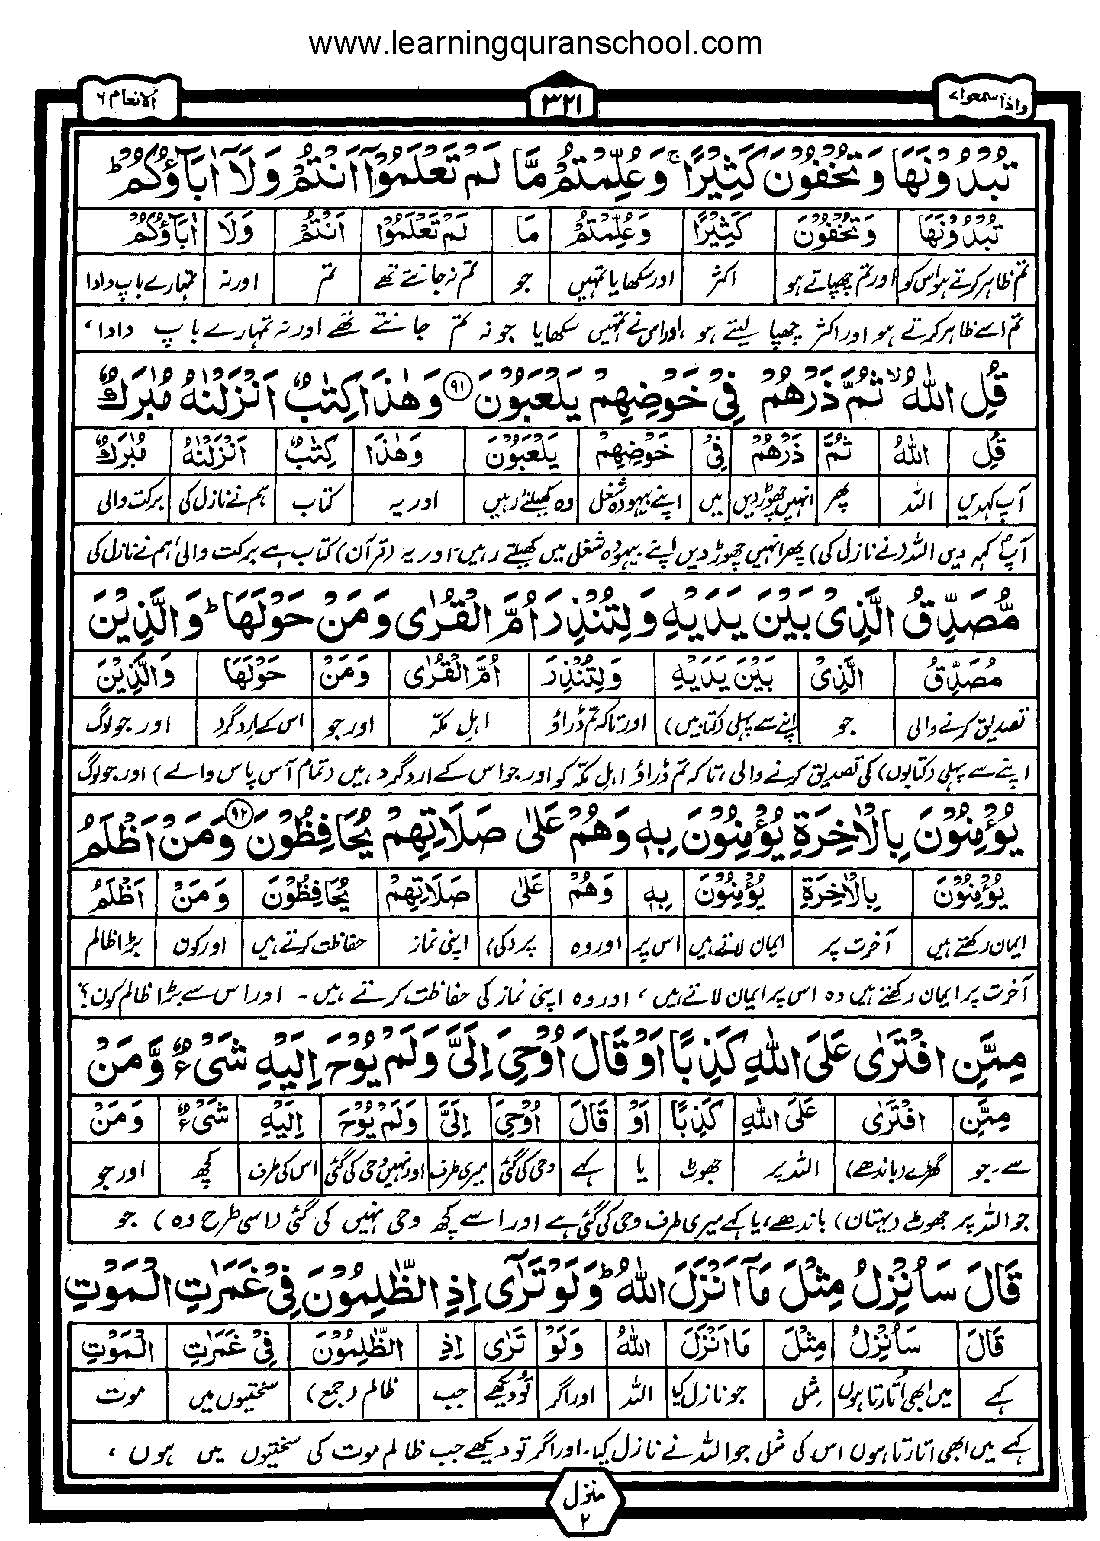 www.learningquranschool.com
واذا سمعوا ۷ ۳۲۱ الانعام ۶
تُبْدُوْنَهَا وَ تُخْفُوْنَ كَثِیْرًا ۚ وَ عُلِّمْتُمْ مَّا لَمْ تَعْلَمُوْۤا اَنْتُمْ وَ لَاۤ اٰبَآؤُكُمْ ؕ
تُبْدُوْنَهَا وَ تُخْفُوْنَ كَثِیْرًا وَ عُلِّمْتُمْ مَا لَمْ تَعْلَمُوْا اَنْتُمْ وَلَا اٰبَآؤُكُمْ
تم ظاہر کرتے ہو اس کو اور تم چھپاتے ہو اکثر اور سکھایا تمہیں جو تم نہ جانتے تھے تم اور نہ تمہارے باپ دادا
تم اسے ظاہر کرتے ہو اور اکثر چھپا لیتے ہو ، اور اس نے تمہیں سکھایا جو نہ تم جانتے تھے اور نہ تمہارے باپ دادا ،
قُلِ اللّٰهُ ۙ ثُمَّ ذَرْهُمْ فِیْ خَوْضِهِمْ یَلْعَبُوْنَ ﴿۹۱﴾ وَ هٰذَا كِتٰبٌ اَنْزَلْنٰهُ مُبٰرَكٌ
قُلِ اللّٰهُ ثُمَّ ذَرْهُمْ فِیْ خَوْضِهِمْ یَلْعَبُوْنَ وَ هٰذَا كِتٰبٌ اَنْزَلْنٰهُ مُبٰرَكٌ
آپ کہدیں اللہ پھر انہیں چھوڑ دیں میں اپنے بیہودہ شغل وہ کھیلتے رہیں اور یہ کتاب ہم نے نازل کی برکت والی
آپؐ کہہ دیں اللہ (نے نازل کی) پھر انہیں چھوڑ دیں اپنے بیہودہ شغل میں کھیلتے رہیں۔ اور یہ (قرآن) کتاب ہے برکت والی، ہم نے نازل کی
مُّصَدِّقُ الَّذِیْ بَیْنَ یَدَیْهِ وَ لِتُنْذِرَ اُمَّ الْقُرٰی وَ مَنْ حَوْلَهَا ؕ وَ الَّذِیْنَ
مُصَدِّقُ الَّذِیْ بَیْنَ یَدَیْهِ وَ لِتُنْذِرَ اُمَّ الْقُرٰی وَ مَنْ حَوْلَهَا وَ الَّذِیْنَ
تصدیق کرنے والی جو اپنے سے پہلی (کتابیں) اور تاکہ تم ڈراؤ اہل مکہ اور جو اس کے ارد گرد اور جو لوگ
اپنے سے پہلی (کتابوں) کی تصدیق کرنے والی ، تاکہ تم ڈراؤ اہل مکہ کو اور جو اس کے ارد گرد ہیں (تمام آس پاس والے) اور جو لوگ
یُؤْمِنُوْنَ بِالْاٰخِرَةِ یُؤْمِنُوْنَ بِهٖ وَ هُمْ عَلٰی صَلَاتِهِمْ یُحَافِظُوْنَ ﴿۹۲﴾ وَ مَنْ اَظْلَمُ
یُؤْمِنُوْنَ بِالْاٰخِرَةِ یُؤْمِنُوْنَ بِهٖ وَ هُمْ عَلٰی صَلَاتِهِمْ یُحَافِظُوْنَ وَ مَنْ اَظْلَمُ
ایمان رکھتے ہیں آخرت پر ایمان لاتے ہیں اس پر اور وہ پر (کی) اپنی نماز حفاظت کرتے ہیں اور کون بڑا ظالم
آخرت پر ایمان رکھتے ہیں وہ اس پر ایمان لاتے ہیں ، اور وہ اپنی نماز کی حفاظت کرتے ہیں ۔ اور اس سے بڑا ظالم کون؟
مِمَّنِ افْتَرٰی عَلَی اللّٰهِ كَذِبًا اَوْ قَالَ اُوْحِیَ اِلَیَّ وَ لَمْ یُوْحَ اِلَیْهِ شَیْءٌ وَّ مَنْ
مِمَّنِ افْتَرٰی عَلَی اللّٰهِ كَذِبًا اَوْ قَالَ اُوْحِیَ اِلَیَّ وَ لَمْ یُوْحَ اِلَیْهِ شَیْءٌ وَ مَنْ
سے۔ جو گھڑے (باندھے) اللہ پر جھوٹ یا کہے وحی کی گئی میری طرف اور نہیں وحی کی گئی اس کی طرف کچھ اور جو
جو اللہ پر جھوٹ (بہتان) باندھے، یا کہے میری طرف وحی کی گئی ہے اور اسے کچھ وحی نہیں کی گئی (اسی طرح وہ) جو
قَالَ سَاُنْزِلُ مِثْلَ مَاۤ اَنْزَلَ اللّٰهُ ؕ وَ لَوْ تَرٰۤی اِذِ الظّٰلِمُوْنَ فِیْ غَمَرٰتِ الْمَوْتِ
قَالَ سَاُنْزِلُ مِثْلَ مَا اَنْزَلَ اللّٰهُ وَلَوْ تَرٰی اِذِ الظّٰلِمُوْنَ فِیْ غَمَرٰتِ الْمَوْتِ
کہے میں ابھی اُتارتا ہوں مثل جو نازل کیا اللہ اور اگر تو دیکھے جب ظالم (جمع) سختیوں میں موت
کہے میں ابھی اتارتا ہوں اس کی مثل جو اللہ نے نازل کیا۔ اور اگر تو دیکھے جب ظالم موت کی سختیوں میں ہوں ،
منزل
۲